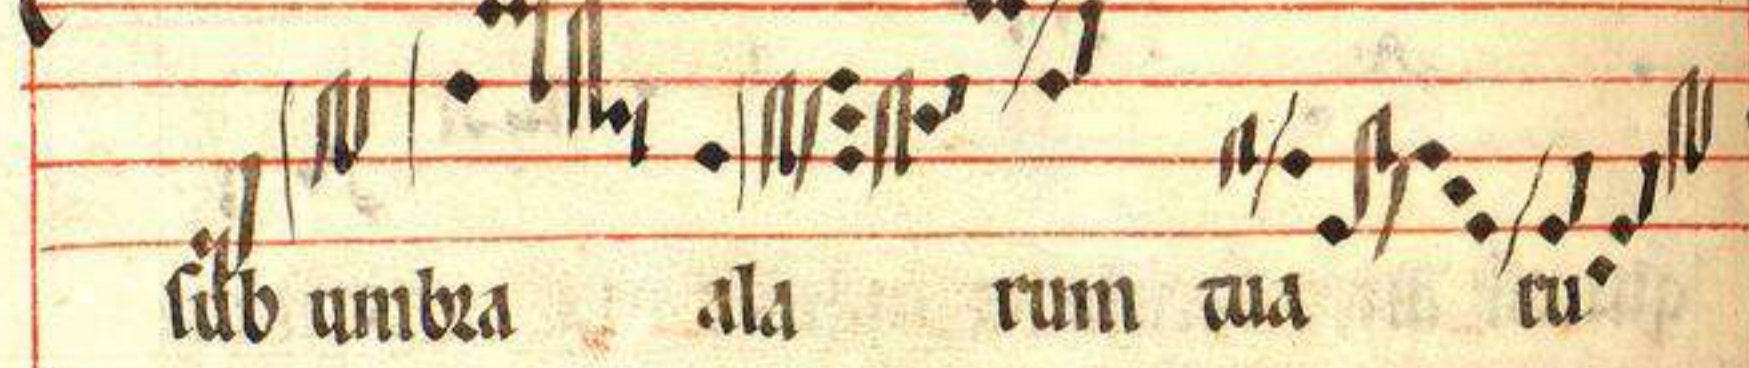 sub umbra ala rum tua ru